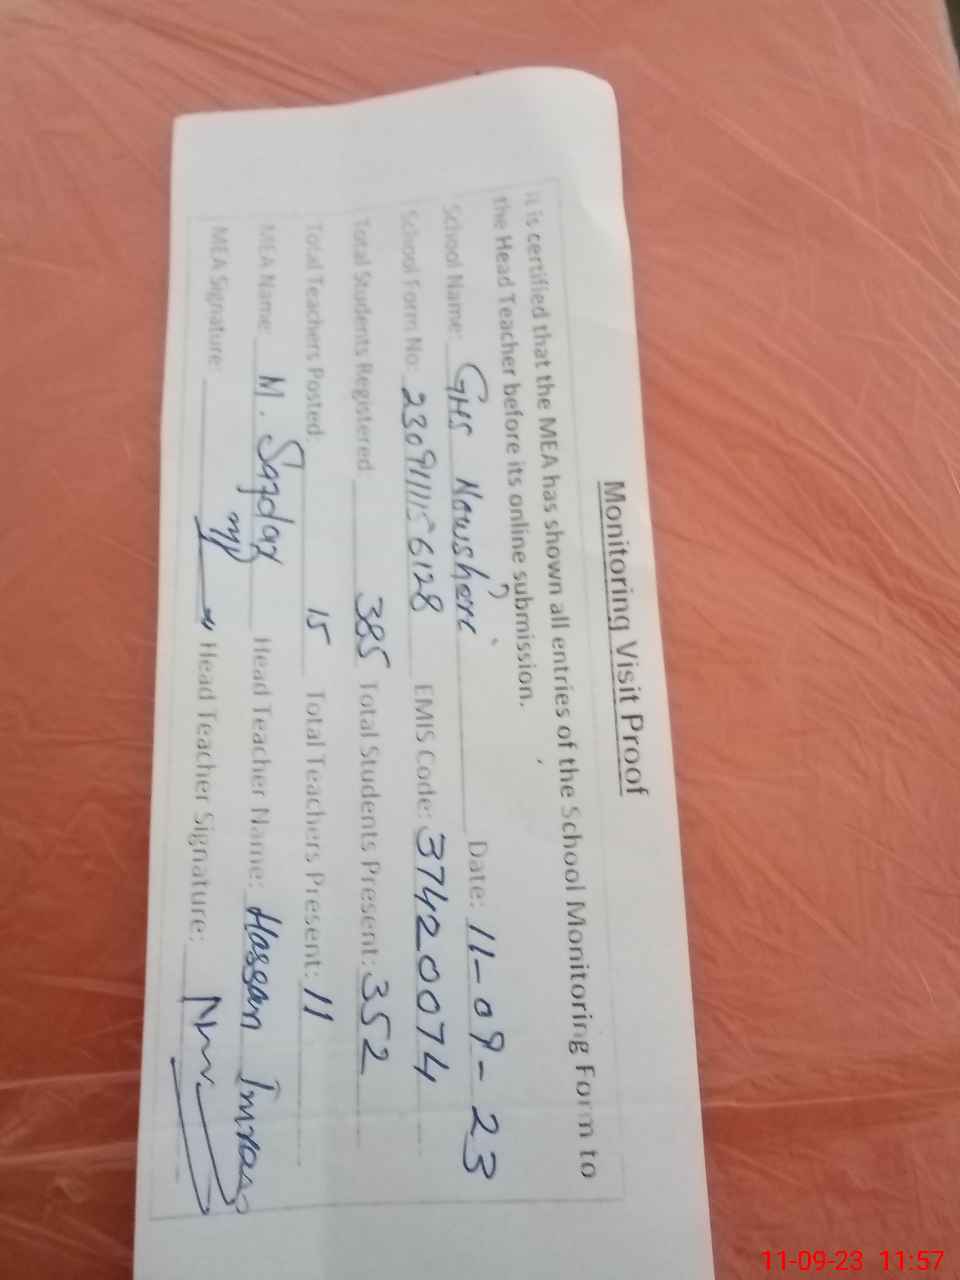 Monitoring Visit Proof
It is certified that the MEA has shown all entries of the School Monitoring Form to
the Head Teacher before its online submission.
School Name: GHS Nowshera Date: 11-09-23
School Form No: 230911156128 EMIS Code: 37420074
Total Students Registered: 385 Total Students Present: 352
Total Teachers Posted: 15 Total Teachers Present: 11
MEA Name: M. Safdar Head Teacher Name: Hassan Imran
MEA Signature: Head Teacher Signature:
11-09-23 11:57